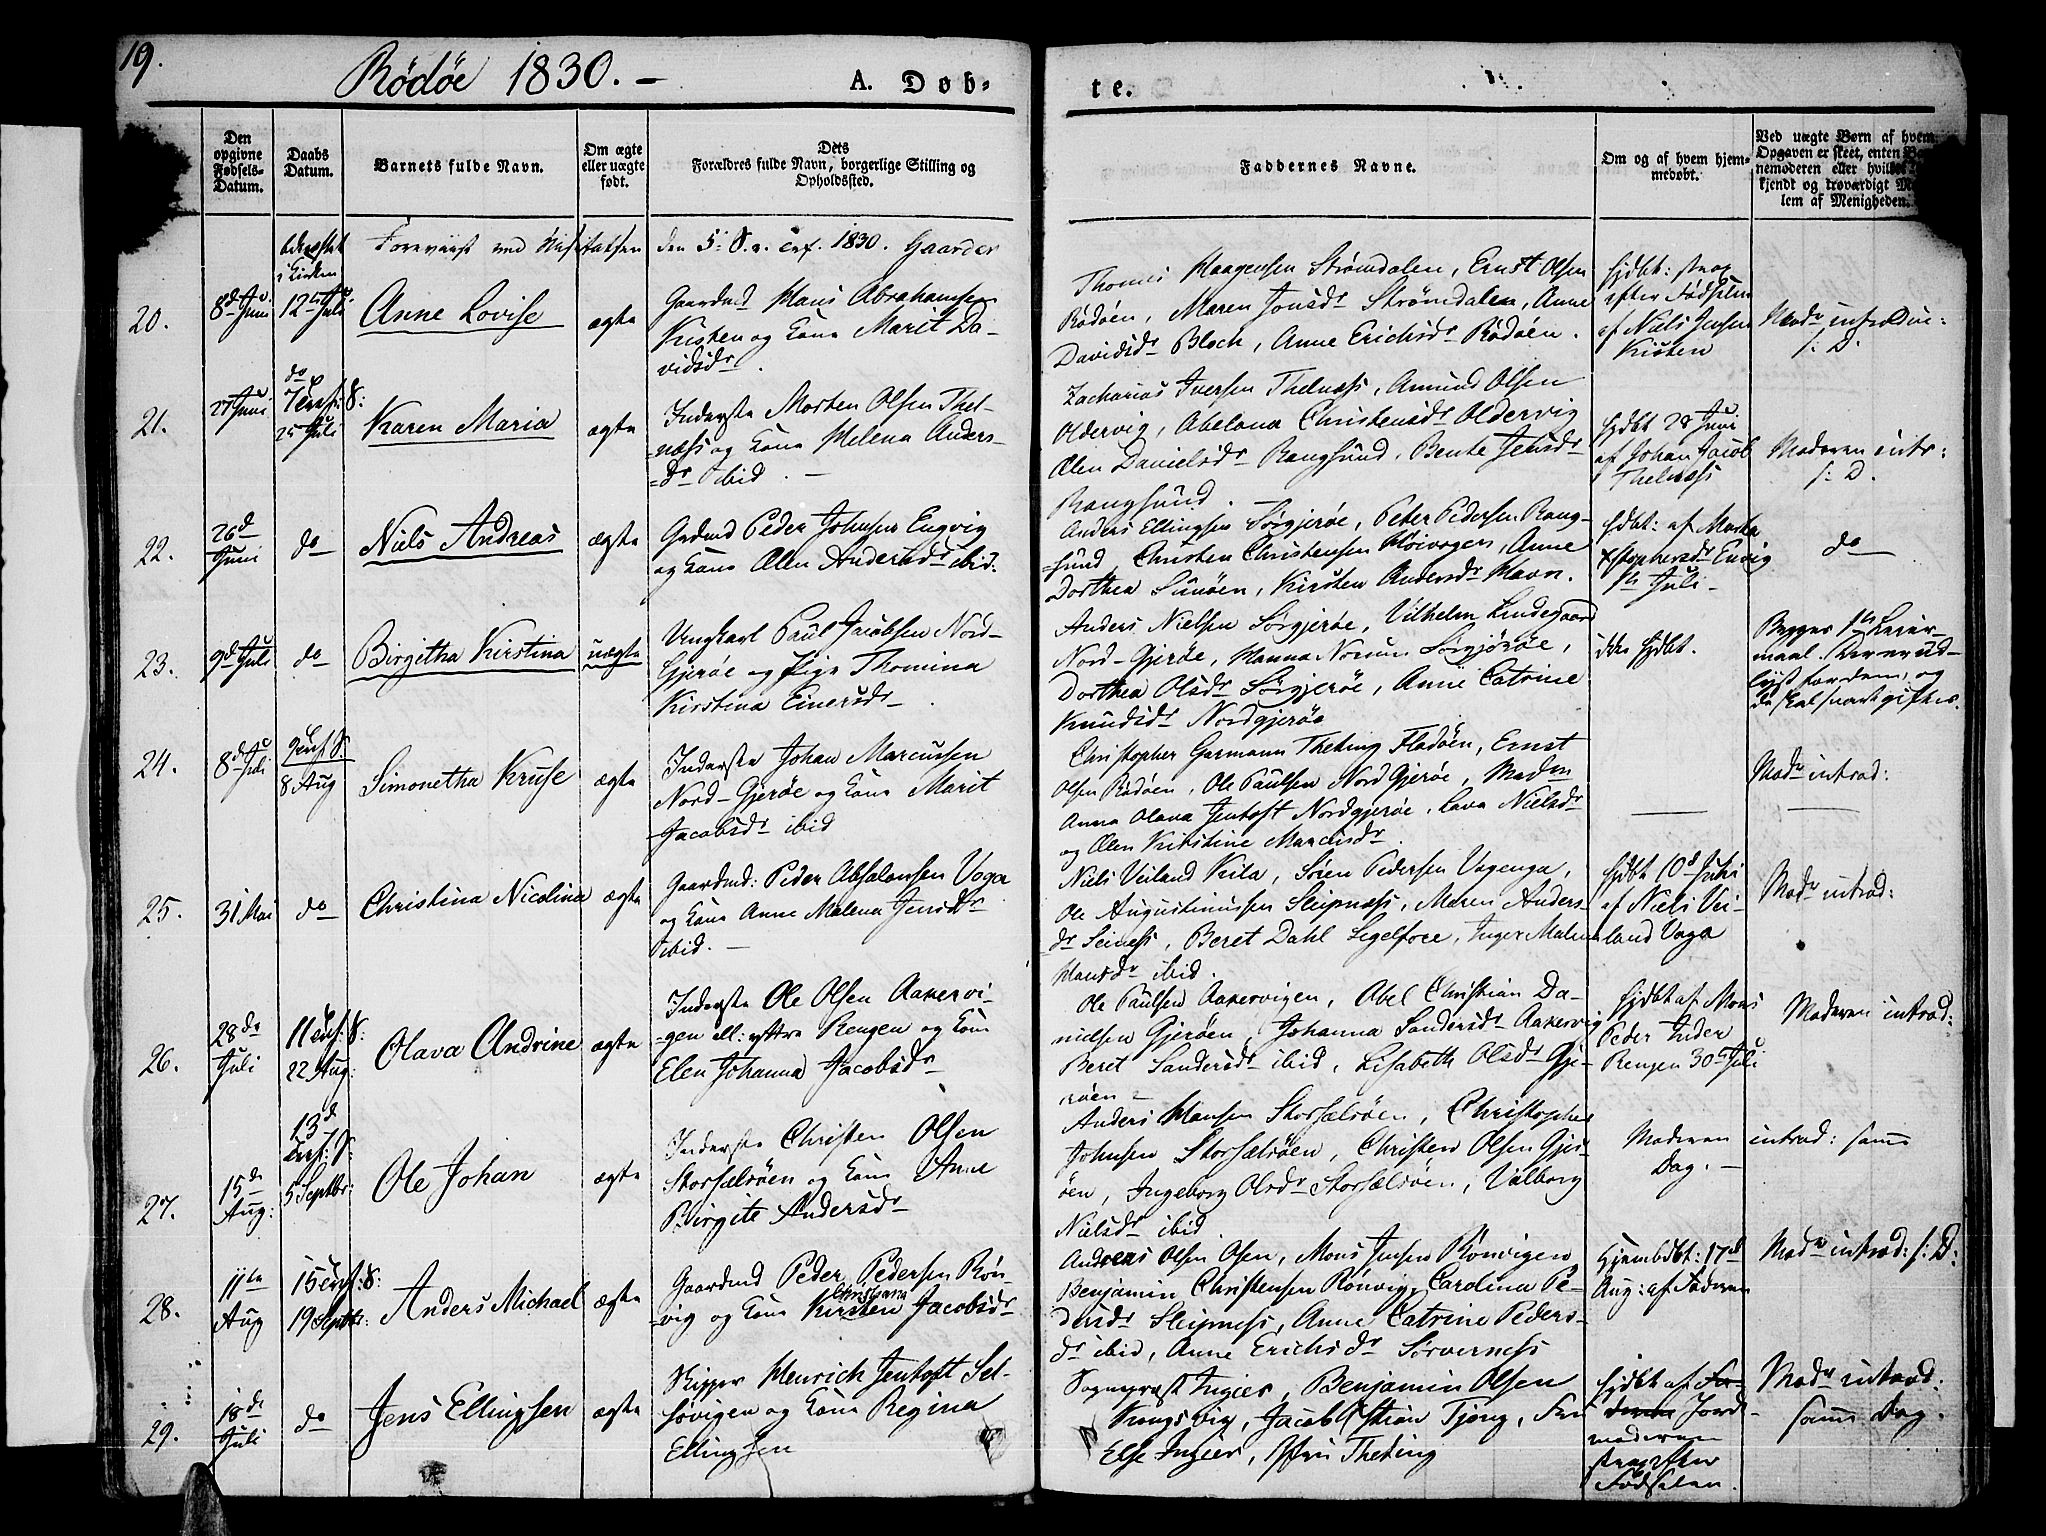 19.
Rödöe 1830. –
A. Døb-
te.
Den opgivne Fødsels-Datum.
Daabs Datum.
Barnets fulde Navn.
Om ægte eller uægte født.
Dets Forældres fulde Navn, borgerlige Stilling og Opholdssted.
Faddernes Navne.
Om og af hvem hjemmedøbt.
Ved uægte Børn af hvem
Opgaven er skeet, enten
nemoderen eller hvilket
kjendt og troværdigt
lem af Menigheden.
i Kirken
Foreviist ved
den 5 S. e. Trf. 1830.
20.
8d Juni
12te Juli
Anne Lovise
ægte
Gaardmd Hans Abrahamsen
Kisten og Kone Marit Da-
vidsdr.
Thomas Haagensen Strömdalen, Ernst Olsen
Rödöen, Maren Jonsdr Strömdalen, Anne
Davidsdr Bloch, Anne Erichsdr Rödöen.
hjdbt: strax
efter Födselen
af Niels Jensen
Kisten
Modr introduc:
s: D.
21.
27 Juni
do
7 Trf: S:
25 Juli
Karen Maria
ægte
Inderste Morten Olsen Thel-
næss og Kone Helena Anders-
dr ibid. –
Zacharias Iversen Thelnæss, Amund Olsen
Oldervig, Abelona Christensdr Oldervig
Elen Danielsdr Rangsund, Bente Jensdr
Rangsund.
hjdbt 28 Juni
af Johan Jacob
Thelnæss
Moderen intr:
s: D.
22.
26d
Juni
do
Niels Andreas
ægte
Grdmd Peder Johnsen Engvig
og Kone Elen Andersdr ibid.
Anders Ellingsen Sörgjeröe, Peter Pedersen Rang-
sund, Christen Christensen Höivogen, Anne
Dorthea Sunöen, Kirsten Andersdr Havn.
hjdbt: af Marta
Xstophersdr Envig
1te Juli –
do
23.
9d Juli
do
Birgitha Kirstina
uægte
Ungkarl Paul Jacobsen Nord-
Gjeröe og Pige Thomina
Kirstina Einersdr.
Anders Nielsen Sörgjeröe, Vilhelm Lindegaard
Nord-Gjeröe, Hanna Norum Sörgjöröe,
Dorthea Olsdr Sörgjeröe, Anne Catrine
Knudsdr Nordgjeröe
ikke hjdbt.
Begges 1te Leier-
maal. Der er ud-
lyst for dem, og
de skal snart giftes.
24.
8d Juli
9 Trf S.
8 Aug
Simonetha Kruse
ægte
Inderste Johan Marcussen
Nord-Gjeröe og Kone Marit
Jacobsdr ibid
Christopher Garmann Theting Flatöen, Ernst
Olsen Rödöen, Ole Paulsen Nord Gjeröe, Madm
Anna Olava Jentoft Nordgjeröe, Lava Nielsdr
og Elen Kirstine Marcusdr.
Modr introd:
25.
31 Mai
do
Christina Nicolina
ægte
Gaardmd: Peder Absalonsen Vaga
og Kone Anne Malena Jensdr
ibid. –
Niels Veiland Kila, Sören Pedersen Vagenga,
Ole Augustinussen Sleipnæss, Maren Anders-
dr Seines, Beret Dahl Segelfore, Inger Malena
Hansdr ibid.
hjdbt 10d Juni
af Niels Vei-
land Vaga
Modr introd:
26.
28de
Juli
11 Trf: S:
22 Aug:
Olava Andrine
ægte
Inderste Ole Olsen Aakervi-
gen ell: yttre Rengen og Kone
Elen Johanna Jacobsdr
Ole Paulsen Aakervigen, Abel Christian Da-
nielsen Gjeröen, Johanna Sandersdr Aakervig
Beret Sandersdr ibid, Lisabeth Olsdr Gje-
röen –
hjdbt af Mons
Peder Inder
Rengen 30te Juli
Moderen introd:
27.
15de
Aug:
13d
Trf: S:
5 Septbr:
Ole Johan
ægte
Inderste Christen Olsen
Storsælsöen og Kone Anne
Birgite Andersdr
Anders Hansen Storsælsöen, Christopher
Johnsen Storsælsöen, Christen Olsen Gjer-
öen, Ingeborg Olsdr Storsælsöen, Valborg
Nielsdr ibid.
Moderen introd: samme
Dag. –
28.
11te
Aug
15 Trf: S:
19 Septbr:
Anders Michael
ægte
Gaardmd Peder Pedersen Rön-
Christiana
vig og Kone Kirsten Jacobsdr
Andreas Olsen Osen, Mons Jensen Rönvigen
Benjamin Christensen Rönvig, Carolina Pe-
dersdr Sleipness, Anne Catrine Peders-
dr ibid, Anne Erichsdr Sörverness
Hjemdbt: 17d
Aug: af Faderen
Modr introd: s: D:
29.
18de
Juli
do
Jens Ellingsen
ægte
Skipper Henrich Jentoft Sel-
sövigen og Kone Regina
Ellingsen
Sognepræst Ingier, Benjamin Olsen
Krongsvig, Jacob Xstian Tjong, Fru
Else Ingier, Jfru Theting
hjdbt af
Jorde-
moderen
strax efter
Födselen.
Modr introd:
samme Dag.